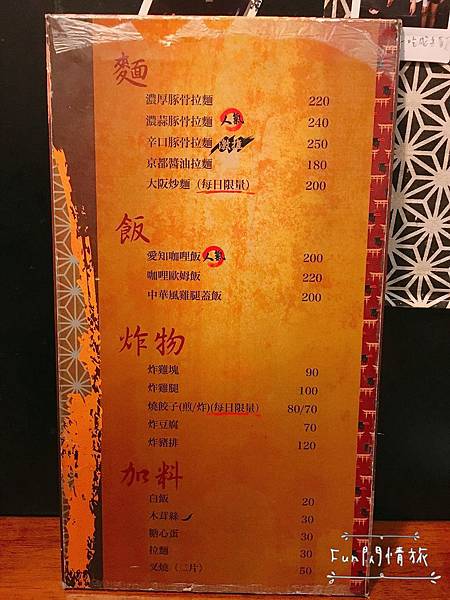 麵
濃厚豚骨拉麵 220
濃蒜豚骨拉麵 人氣 240
辛口豚骨拉麵 激推 250
京都醬油拉麵 180
大阪炒麵（每日限量） 200
飯
愛知咖哩飯 人氣 200
咖哩歐姆飯 220
中華風雞腿蓋飯 200
炸物
炸雞塊 90
炸雞腿 100
燒餃子(煎/炸)(每日限量) 80/70
炸豆腐 70
炸豬排 120
加料
白飯 20
木茸絲 30
糖心蛋 30
拉麵 30
叉燒（二片） 50
Fun閃情旅